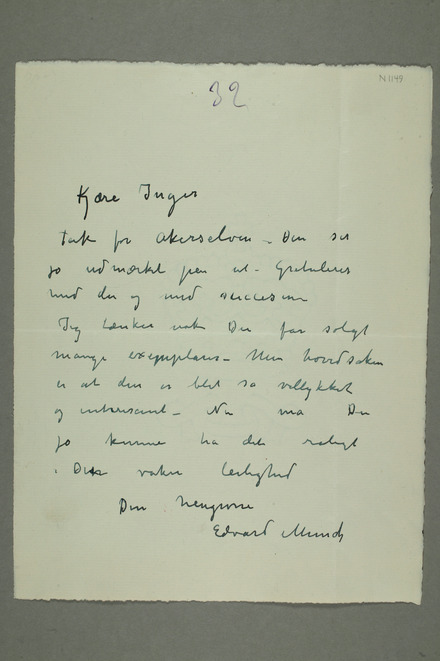 N 1149
32
Kjære Inger
Tak for Akerselven – Den ser
jo udmærket pen ut – Gratulerer
med den og med succesen
Jeg tænker nok Du får solgt
mange exemplarer – Men hovedsaken
er at den er blet så vellykket
og interesant – Nu må Du
jo kunne ha det roligt
i Din vakre leilighed
Din hengivne
Edvard Munch